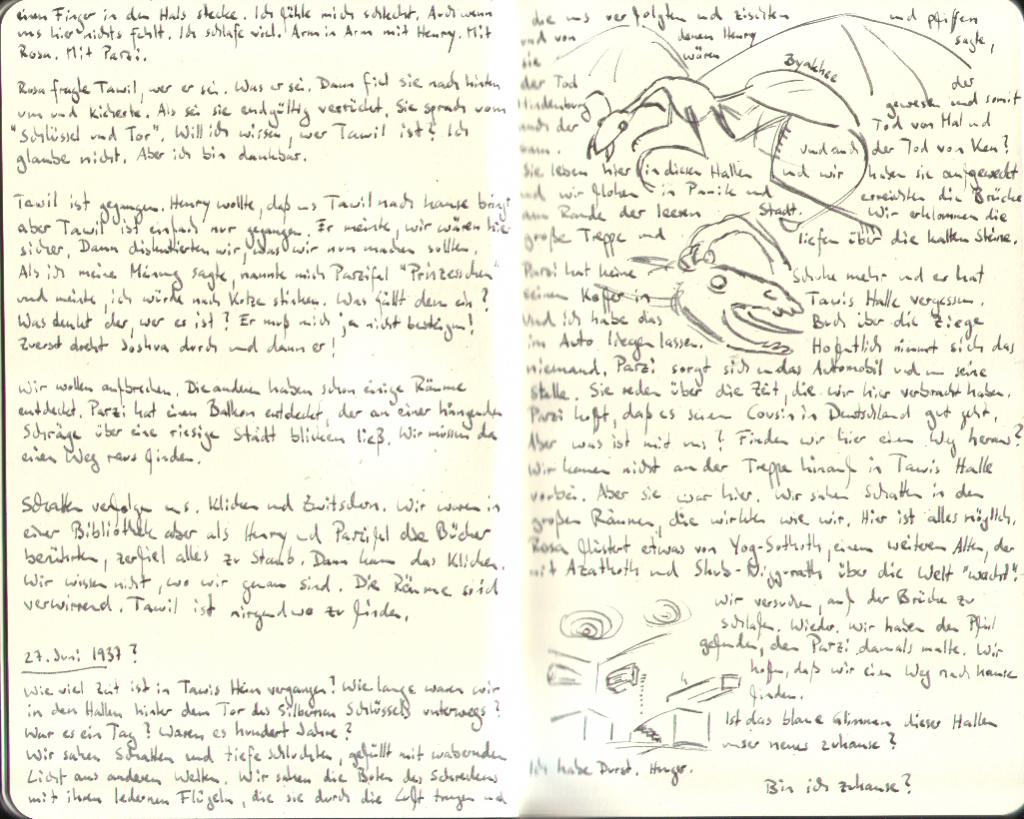 einen Finger in den Hals stecke. Ich fühle mich schlecht. Auch wenn
uns hier nichts fehlt. Ich schlafe viel. Arm in Arm mit Henry. Mit
Rosa. Mit Parzi.
Rosa fragte Tawil, wer er sei. Was er sei. Dann fiel sie nach hinten
um und kicherte. Als sei sie endgültig verrückt. Sie sprach vom
"Schlüssel und Tor". Will ich wissen, wer Tawil ist? Ich
glaube nicht. Aber ich bin dankbar.
Tawil ist gegangen. Henry wollte, daß uns Tawil nach hause bringt
aber Tawil ist einfach nur gegangen. Er meinte, wir wären hier
sicher. Dann diskutierten wir, was wir nun machen sollten.
Als ich meine Meinung sagte, nannte mich Parzifal "Prinzesschen"
und meinte, ich würde nach Kotze stinken. Was fällt dem ein?
Was denkt der, wer es ist? Er muß mich ja nicht besteigen!
Zuerst dreht Joshua durch und dann er!
Wir wollen aufbrechen. Die anderen haben schon einige Räume
entdeckt. Parzi hat einen Balkon entdeckt, der an einer hängenden
Schräge über eine riesige Stadt blicken ließ. Wir müssen da
einen Weg raus finden.
Schatten verfolgen uns. Klicken und Zwitschern. Wir waren in
einer Bibliothek aber als Henry und Parzifal die Bücher
berührten, zerfiel alles zu Staub. Dann kam das Klicken.
Wir wissen nicht, wo wir genau sind. Die Räume sind
verwirrend. Tawil ist nirgendwo zu finden.
27. Juni 1937?
Wie viel Zeit ist in Tawis Heim vergangen? Wie lange waren wir
in den Hallen hinter dem Tor des Silbernen Schlüssels unterwegs?
War es ein Tag? Waren es hundert Jahre?
Wir sahen Schatten und tiefe Schluchten, gefüllt mit waberndem
Licht aus anderen Welten. Wir sahen die Boten des Schreckens
mit ihren ledernen Flügeln, die sie durch die Luft tragen und
die uns verfolgten und zischten und pfiffen
und von denen Henry sagte,
sie wären
Byakhee
der Tod der
Hindenburg gewesen und somit
auch der Tod von Hal und
und auch der Tod von Ken?
Sie leben hier in diesen Hallen und wir haben sie aufgeweckt
und wir flohen in Panik und erreichten die Brücke
am Rande der leeren Stadt. Wir erklommen die
große Treppe und liefen über die kalten Steine.
Parzi hat keine Schuhe mehr und er hat
seinen Koffer in Tawis Halle vergessen.
Und ich habe das Buch über die Ziege
im Auto liegen lassen. Hoffentlich nimmt sich das
niemand. Parzi sorgt sich um das Automobil und um seine
Stelle. Sie reden über die Zeit, die wir hier verbracht haben.
Parzi hofft, daß es seinem Cousin in Deutschland gut geht.
Aber was ist mit uns? Finden wir hier einen Weg heraus?
Wir kamen nicht an der Treppe hinauf in Tawis Halle
vorbei. Aber sie war hier. Wir sahen Schatten in den
großen Räumen, die wirkten wie wir. Hier ist alles möglich.
Rosa flüstert etwas von Yog-Sothoth, einem weiteren Alten, der
mit Azathoth und Shub-Niggurath über die Welt "wacht".
Wir versuchen, auf der Brücke zu
schlafen. Wieder. Wir haben den Pfeil
gefunden, den Parzi damals malte. Wir
hoffen, daß wir einen Weg nach hause
finden.
Ist das blaue Glimmen dieser Hallen
unser neues zuhause?
Ich habe Durst. Hunger.
Bin ich zuhause?